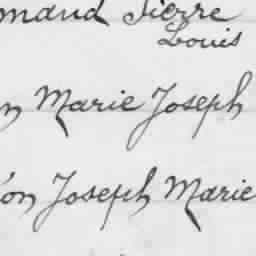 mand Pierre
Louis
n Marie Joseph
on Joseph Marie